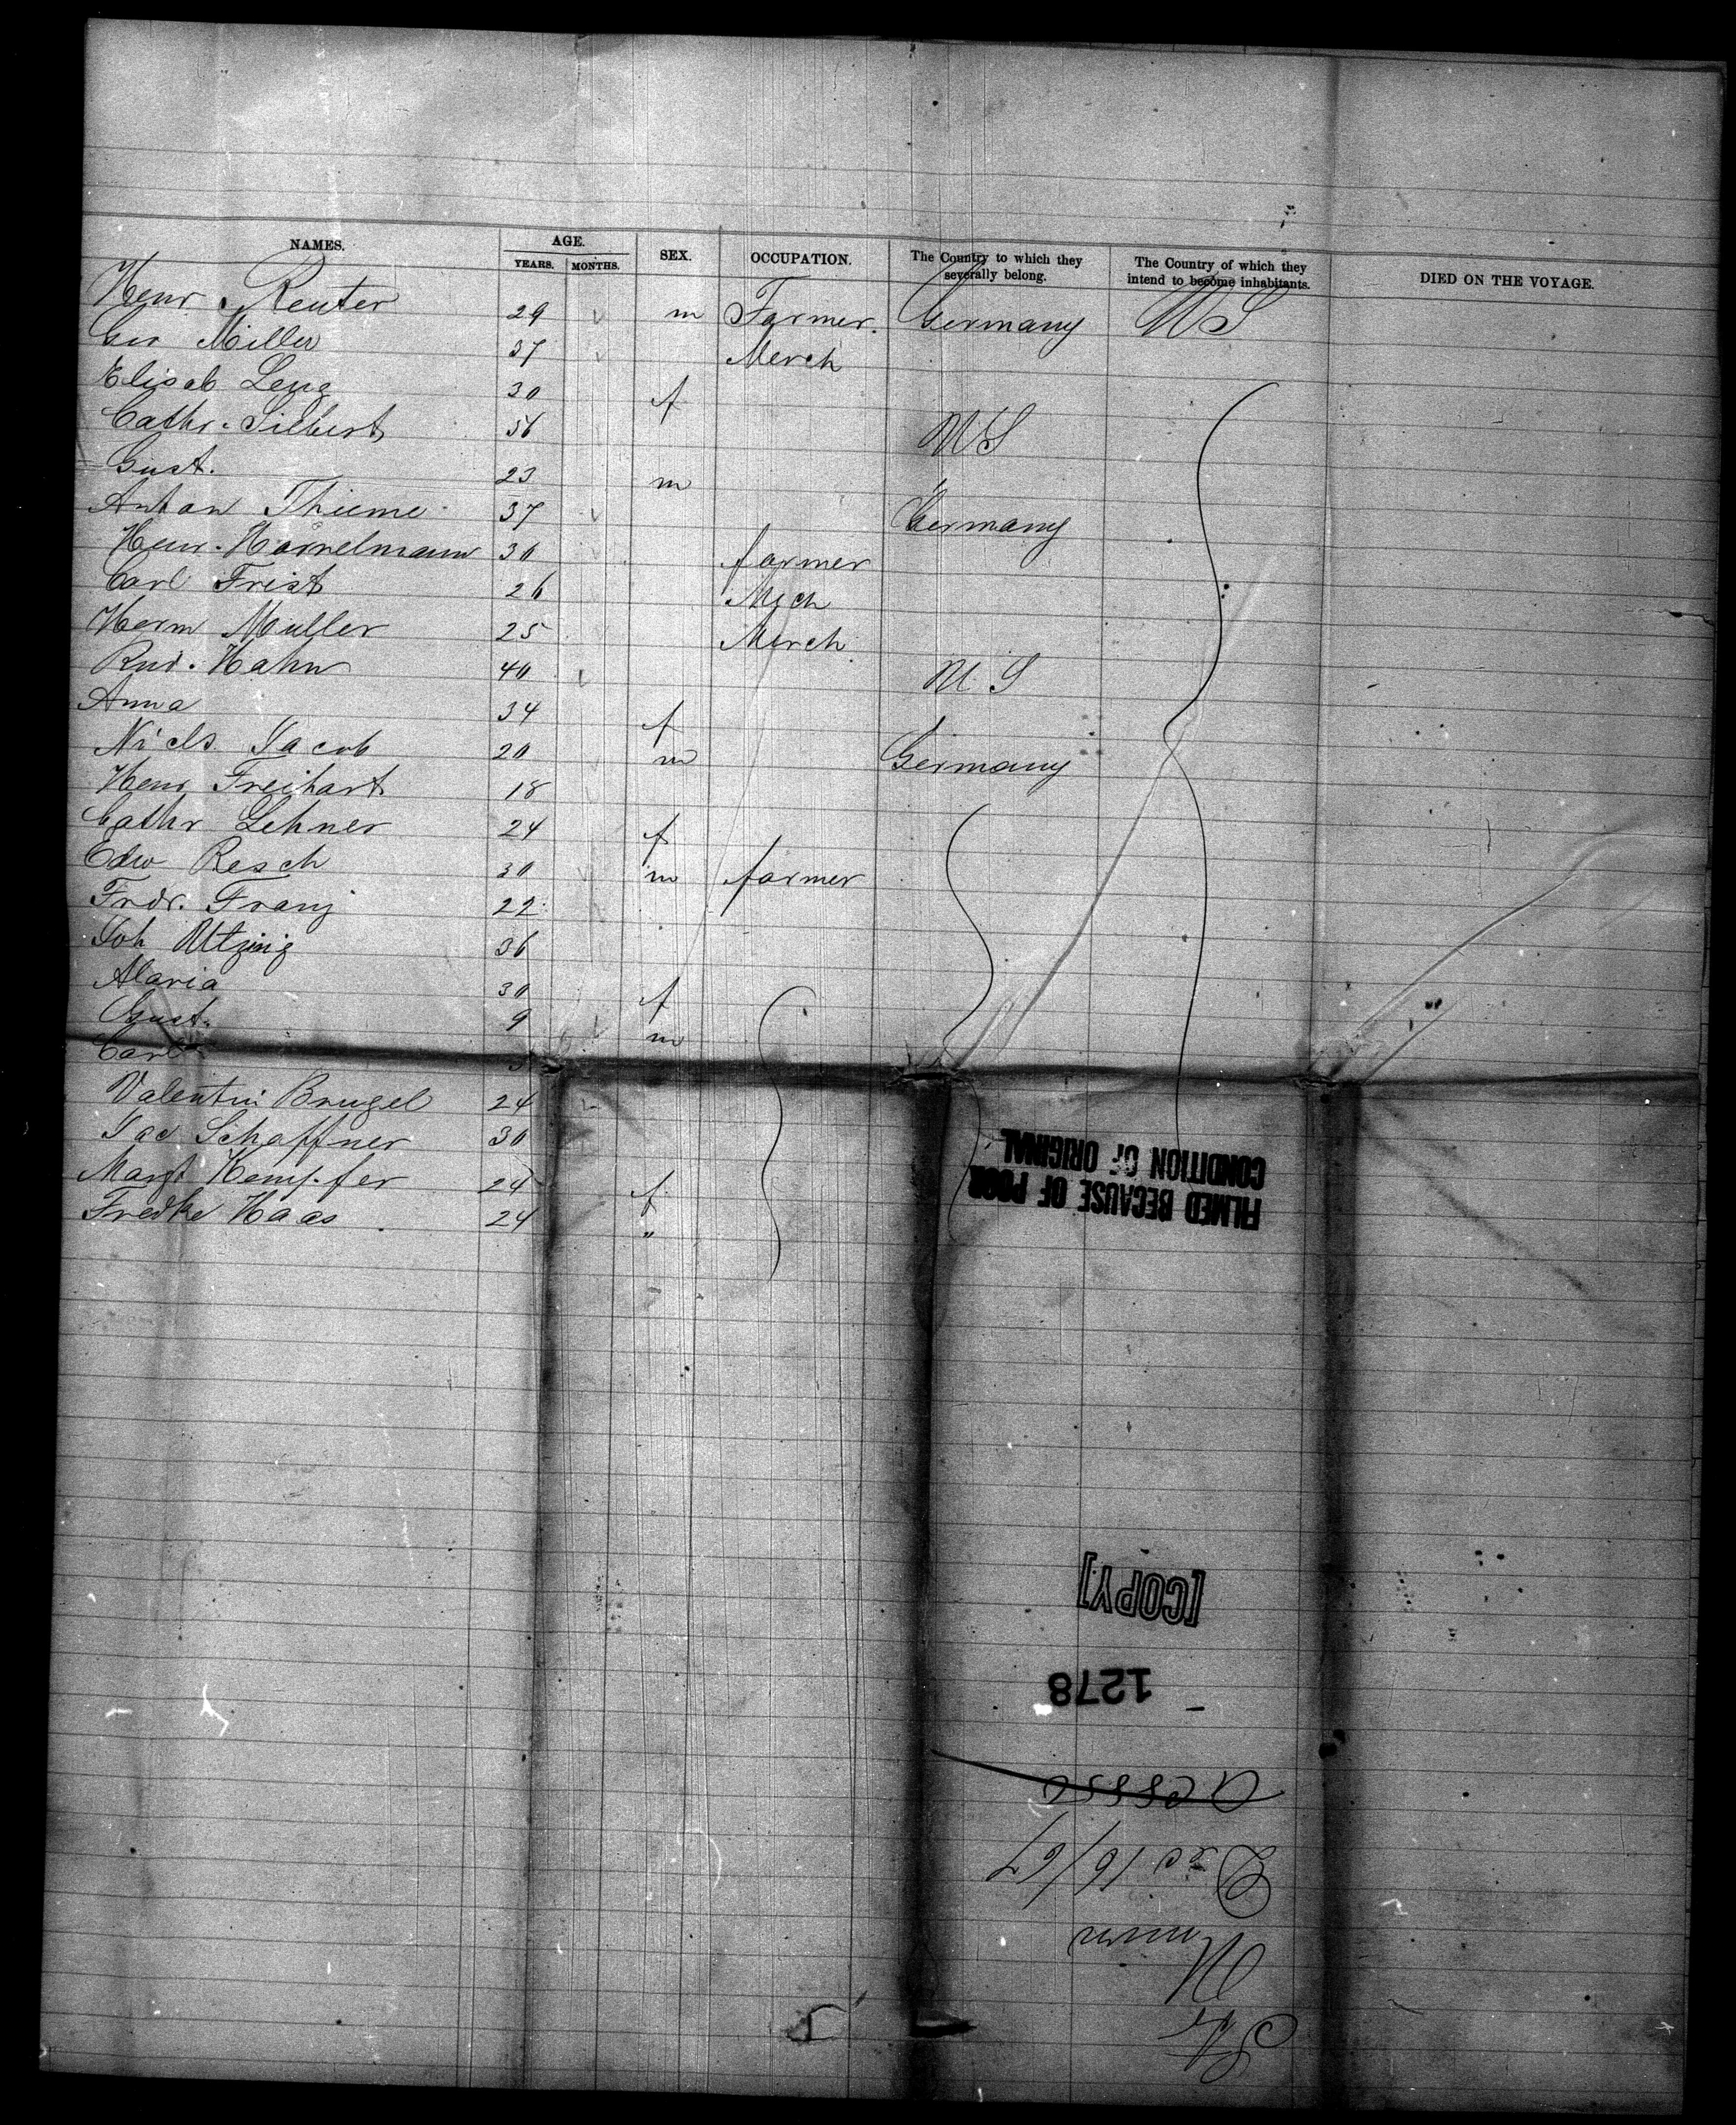 NAMES. AGE. SEX. OCCUPATION. The Country to which they severally belong. The Country of which they intend to become inhabitants. DIED ON THE VOYAGE.
YEARS. MONTHS.
Henr. Reuter 29 m Farmer. Germany US
Geo Miller 37 Merch
Elisab Leng 30 f
Cathr. Silbert 56 US
Gust. 23 m
Anton Thieme 37 Germany
Henr. Hörnelmann 30 farmer
Carl Frist 26 Mech
Herm Muller 25 Merch
Rud. Hahn 40 U.S
Anna 34 f
Niels Jacob 20 m Germany
Henr Freihart 18
Cathr Lehner 24 f
Edw Resch 30 m farmer
Frdr. Franz 22
Joh Utzinig 36
Maria 30 f
Gust. 9 m
Carl
Valentin Brugel 24
Jac Schaffner 30
Margt Kempfer 24 f
Fredke Haas 24 "
FILMED BECAUSE OF POOR
CONDITION OF ORIGINAL
[COPY]
1278
Dec 16/67